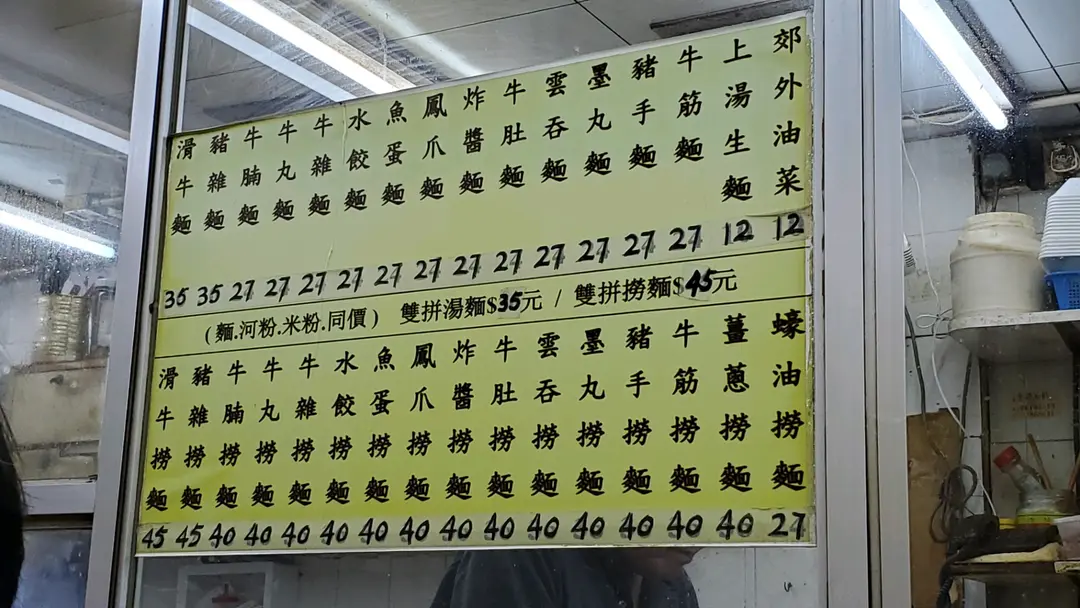 郊外油菜 12
上湯生麵 12
牛筋麵 27
豬手麵 27
墨丸麵 27
雲吞麵 27
牛肚麵 27
炸醬麵 27
鳳爪麵 27
魚蛋麵 27
水餃麵 27
牛雜麵 27
牛丸麵 27
牛腩麵 27
豬雜麵 35
滑牛麵 35
(麵.河粉.米粉.同價) 雙拼湯麵$35元 / 雙拼撈麵$45元
蠔油撈麵 27
薑蔥撈麵 40
牛筋撈麵 40
豬手撈麵 40
墨丸撈麵 40
雲吞撈麵 40
牛肚撈麵 40
炸醬撈麵 40
鳳爪撈麵 40
魚蛋撈麵 40
水餃撈麵 40
牛雜撈麵 40
牛丸撈麵 40
牛腩撈麵 40
豬雜撈麵 45
滑牛撈麵 45